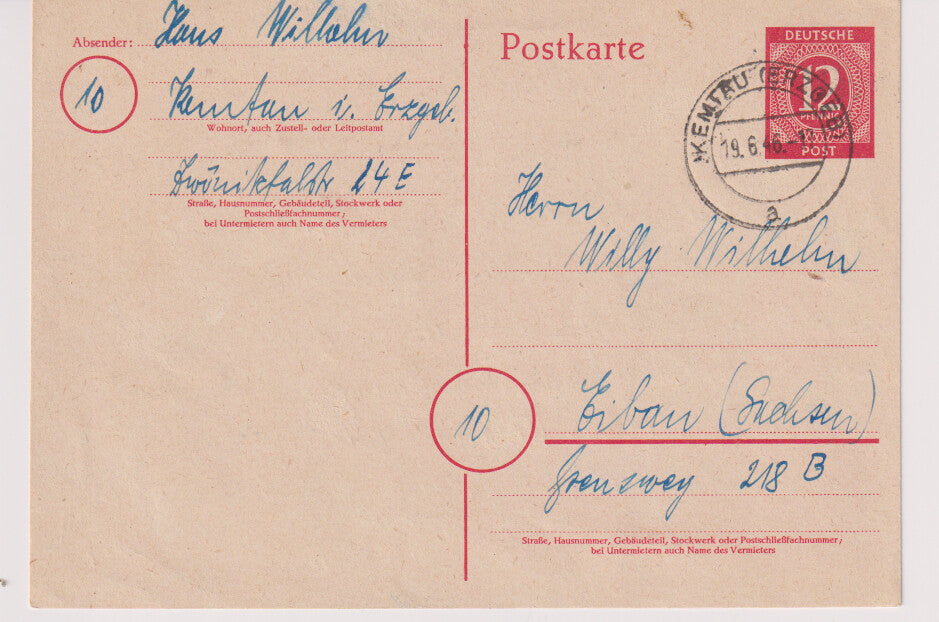 Absender: Hans Wilhelm
10
Kemtau i. Erzgeb.
Wohnort, auch Zustell- oder Leitpostamt
Zwönitztalstr 24 E
Straße, Hausnummer, Gebäudeteil, Stockwerk oder
Postschließfachnummer;
bei Untermietern auch Name des Vermieters
Postkarte
DEUTSCHE
12
PF
POST
KEMTAU (ERZGEB)
19.6.46.
a
Herrn
Willy Wilhelm
10
Eibau (Sachsen)
Grenzweg 218 B
Straße, Hausnummer, Gebäudeteil, Stockwerk oder Postschließfachnummer;
bei Untermietern auch Name des Vermieters